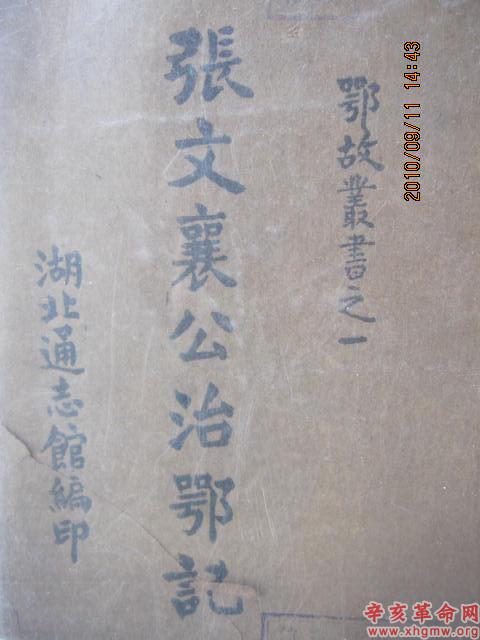 鄂故叢書之一
張文襄公治鄂記
湖北通志館編印
2010/09/11 14:43
辛亥革命网
www.xhgmw.org